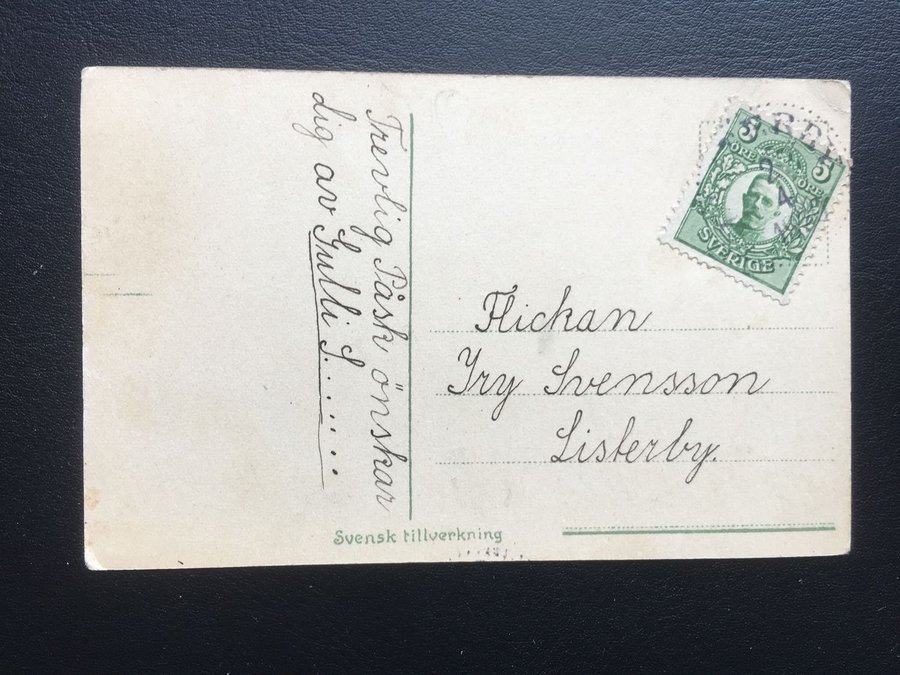 Trevlig Påsk önskar
dig av Gulli S......
5 5
ÖRE ÖRE
SVERIGE
Flickan
Iry Svensson
Listerby.
Svensk tillverkning